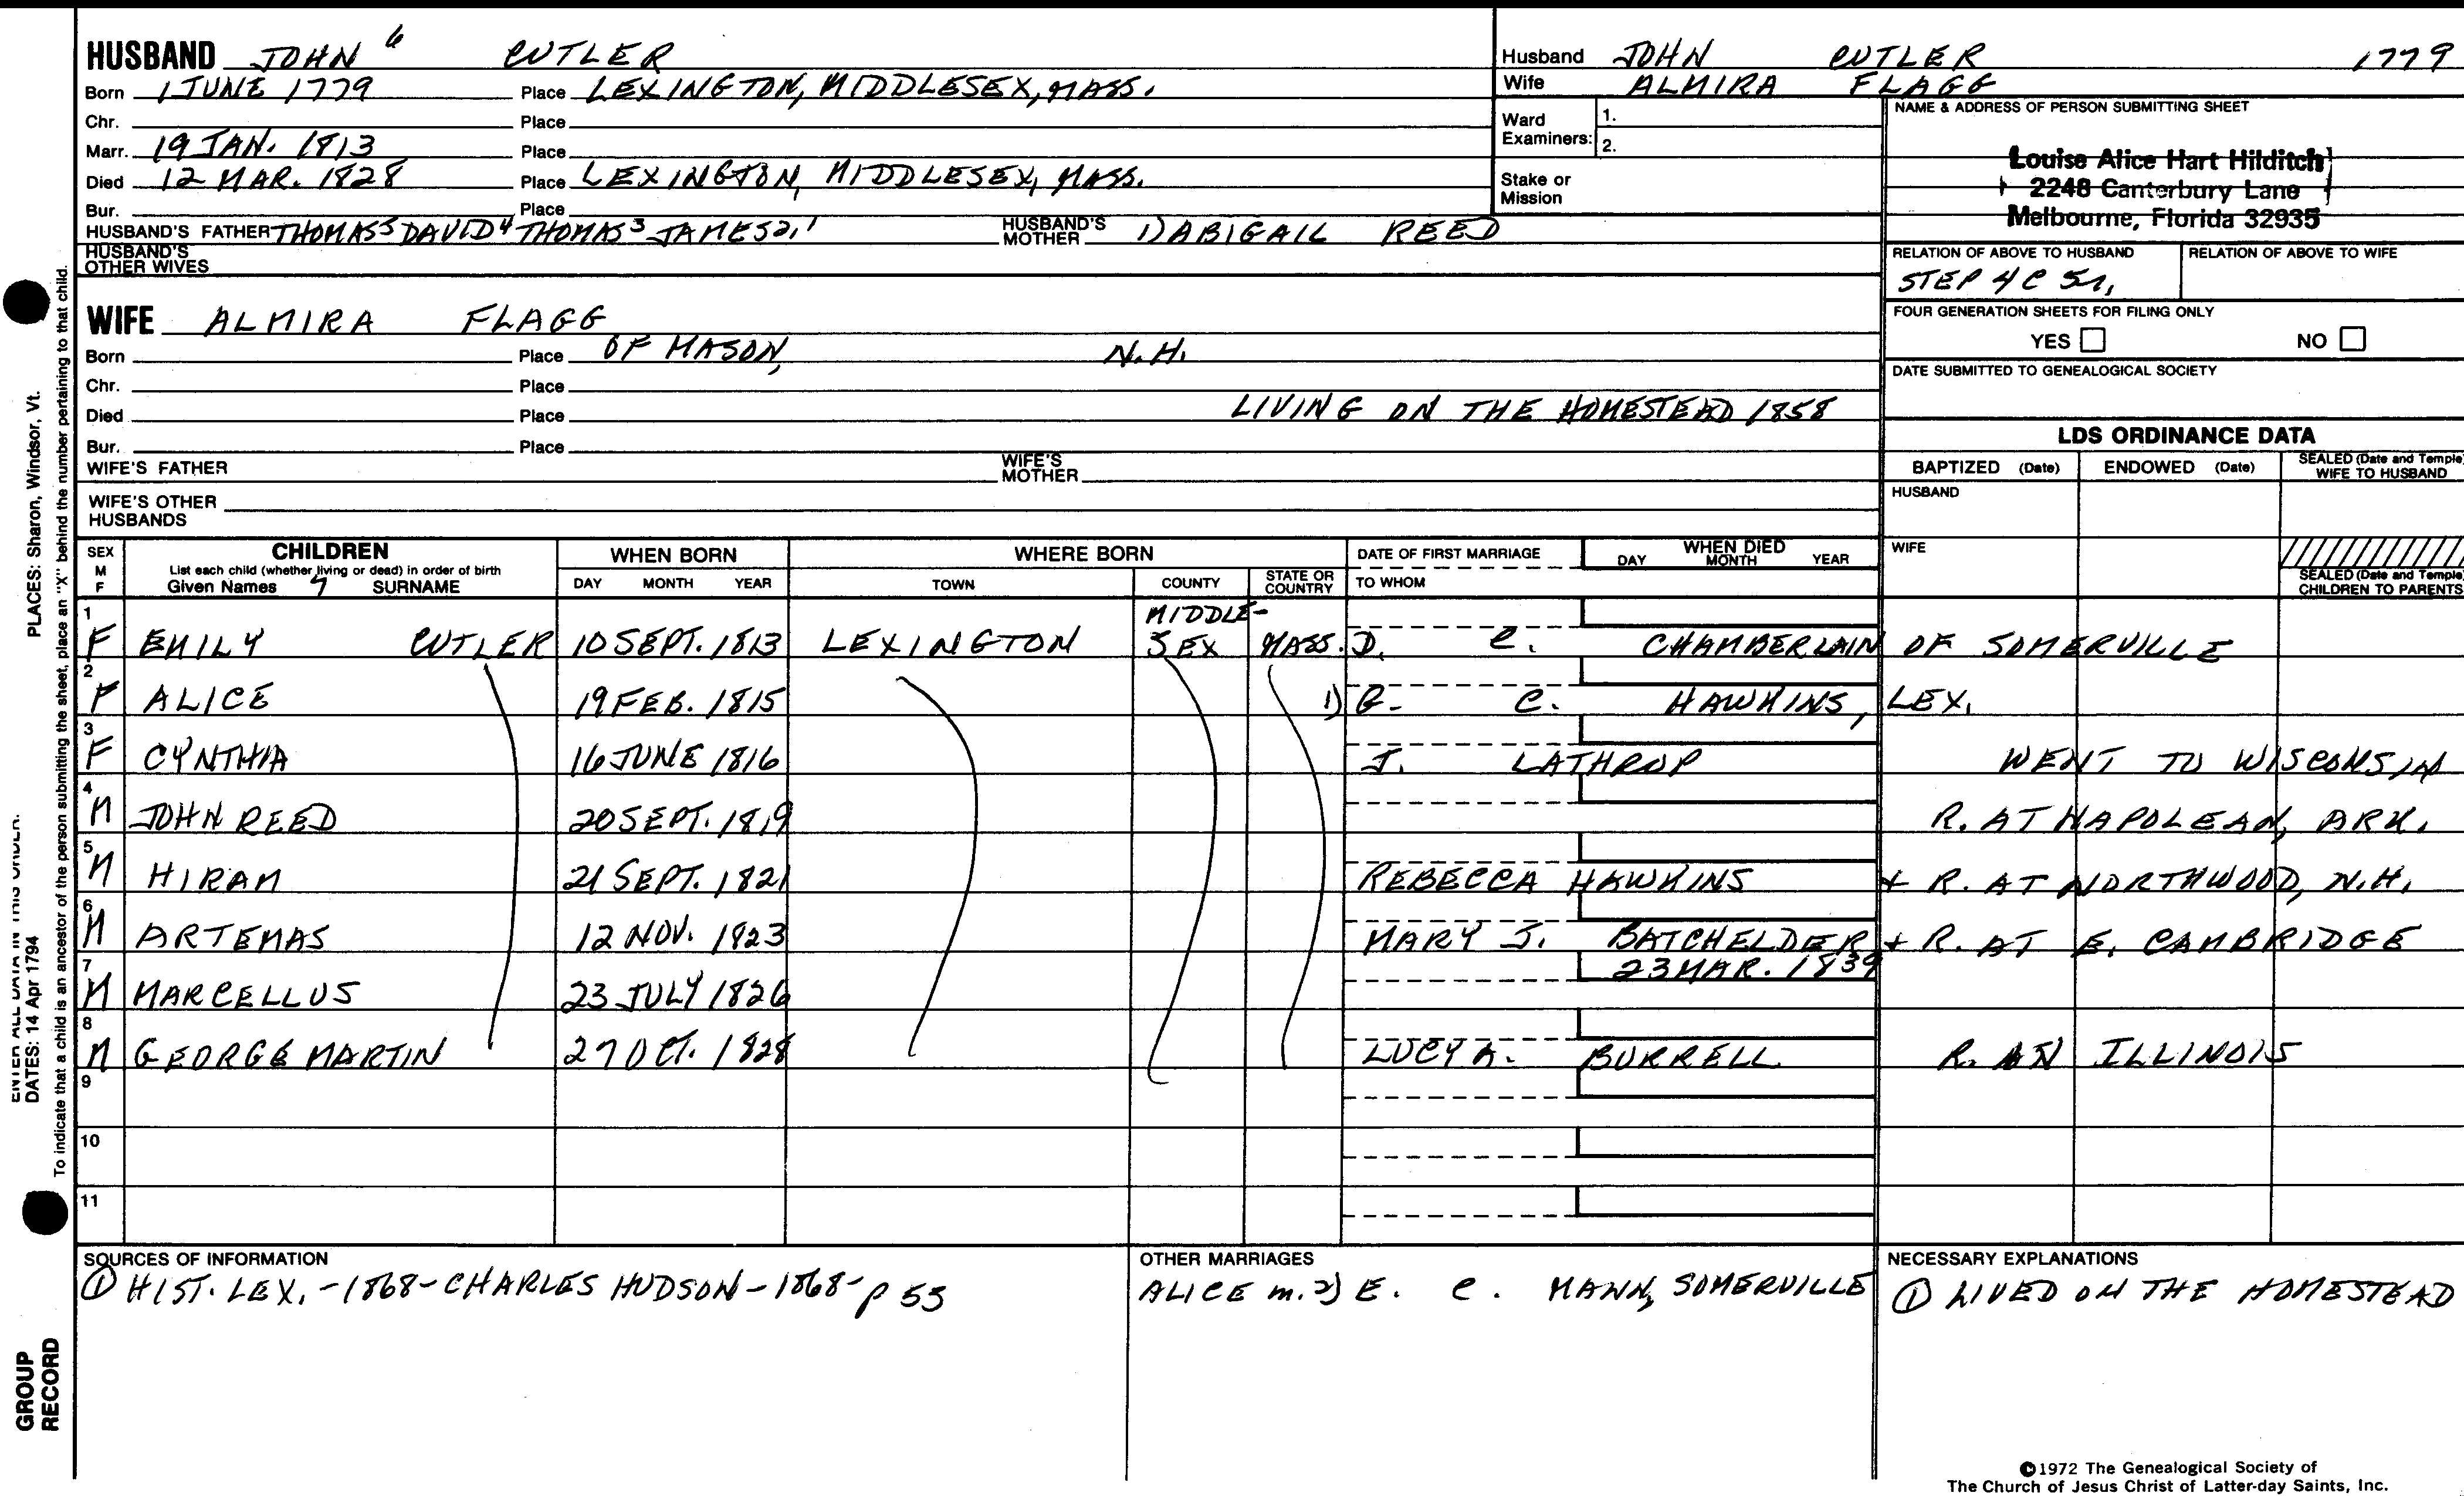 HUSBAND JOHN 6 CUTLER
Born 1 JUNE 1779 Place LEXINGTON, MIDDLESEX, MASS.
Chr. Place
Marr. 19 JAN. 1813 Place
Died 12 MAR. 1828 Place LEXINGTON, MIDDLESEX, MASS.
Bur. Place
HUSBAND'S FATHER THOMAS5 DAVID4 THOMAS3 JAMES2,1 HUSBAND'S MOTHER 1) ABIGAIL REED
HUSBAND'S OTHER WIVES
WIFE ALMIRA FLAGG
Born Place OF MASON, N.H.
Chr. Place
Died Place LIVING ON THE HOMESTEAD 1858
Bur. Place
WIFE'S FATHER WIFE'S MOTHER
WIFE'S OTHER HUSBANDS
Husband JOHN CUTLER 1779
Wife ALMIRA FLAGG
Ward Examiners: 1.
2.
Stake or Mission
NAME & ADDRESS OF PERSON SUBMITTING SHEET
Louise Alice Hart Hilditch
2248 Canterbury Lane
Melbourne, Florida 32935
RELATION OF ABOVE TO HUSBAND RELATION OF ABOVE TO WIFE
STEP 4 C 5r,
FOUR GENERATION SHEETS FOR FILING ONLY
YES NO
DATE SUBMITTED TO GENEALOGICAL SOCIETY
LDS ORDINANCE DATA
BAPTIZED (Date) ENDOWED (Date) SEALED (Date and Temple) WIFE TO HUSBAND
HUSBAND
WIFE
SEALED (Date and Temple) CHILDREN TO PARENTS
SEX M F CHILDREN WHEN BORN WHERE BORN DATE OF FIRST MARRIAGE WHEN DIED
List each child (whether living or dead) in order of birth
Given Names 7 SURNAME DAY MONTH YEAR TOWN COUNTY STATE OR COUNTRY TO WHOM DAY MONTH YEAR
1 F EMILY CUTLER 10 SEPT. 1813 LEXINGTON MIDDLE-SEX MASS. D. C. CHAMBERLAIN OF SOMERVILLE
2 F ALICE 19 FEB. 1815 1) G. C. HAWKINS, LEX.
3 F CYNTHIA 16 JUNE 1816 J. LATHROP WENT TO WISCONSIN
4 M JOHN REED 20 SEPT. 1819 R. AT NAPOLEAN, ARK.
5 M HIRAM 21 SEPT. 1821 REBECCA HAWKINS + R. AT NORTHWOOD, N.H.
6 M ARTEMAS 12 NOV. 1823 MARY J. BATCHELDER + R. AT E. CAMBRIDGE
7 M MARCELLUS 23 JULY 1826 23 MAR. 1839
8 M GEORGE MARTIN 27 OCT. 1828 LUCY A. BURRELL R. IN ILLINOIS
9
10
11
SOURCES OF INFORMATION
① HIST. LEX. - 1868 - CHARLES HUDSON - 1868 - p 53
OTHER MARRIAGES
ALICE m. 2) E. C. MANN, SOMERVILLE
NECESSARY EXPLANATIONS
① LIVED ON THE HOMESTEAD
©1972 The Genealogical Society of
The Church of Jesus Christ of Latter-day Saints, Inc.
PLACES: Sharon, Windsor, Vt.
ENTER ALL DATA IN THIS ORDER:
DATES: 14 Apr 1794
To indicate that a child is an ancestor of the person submitting the sheet, place an "X" behind the number pertaining to that child.
GROUP
RECORD